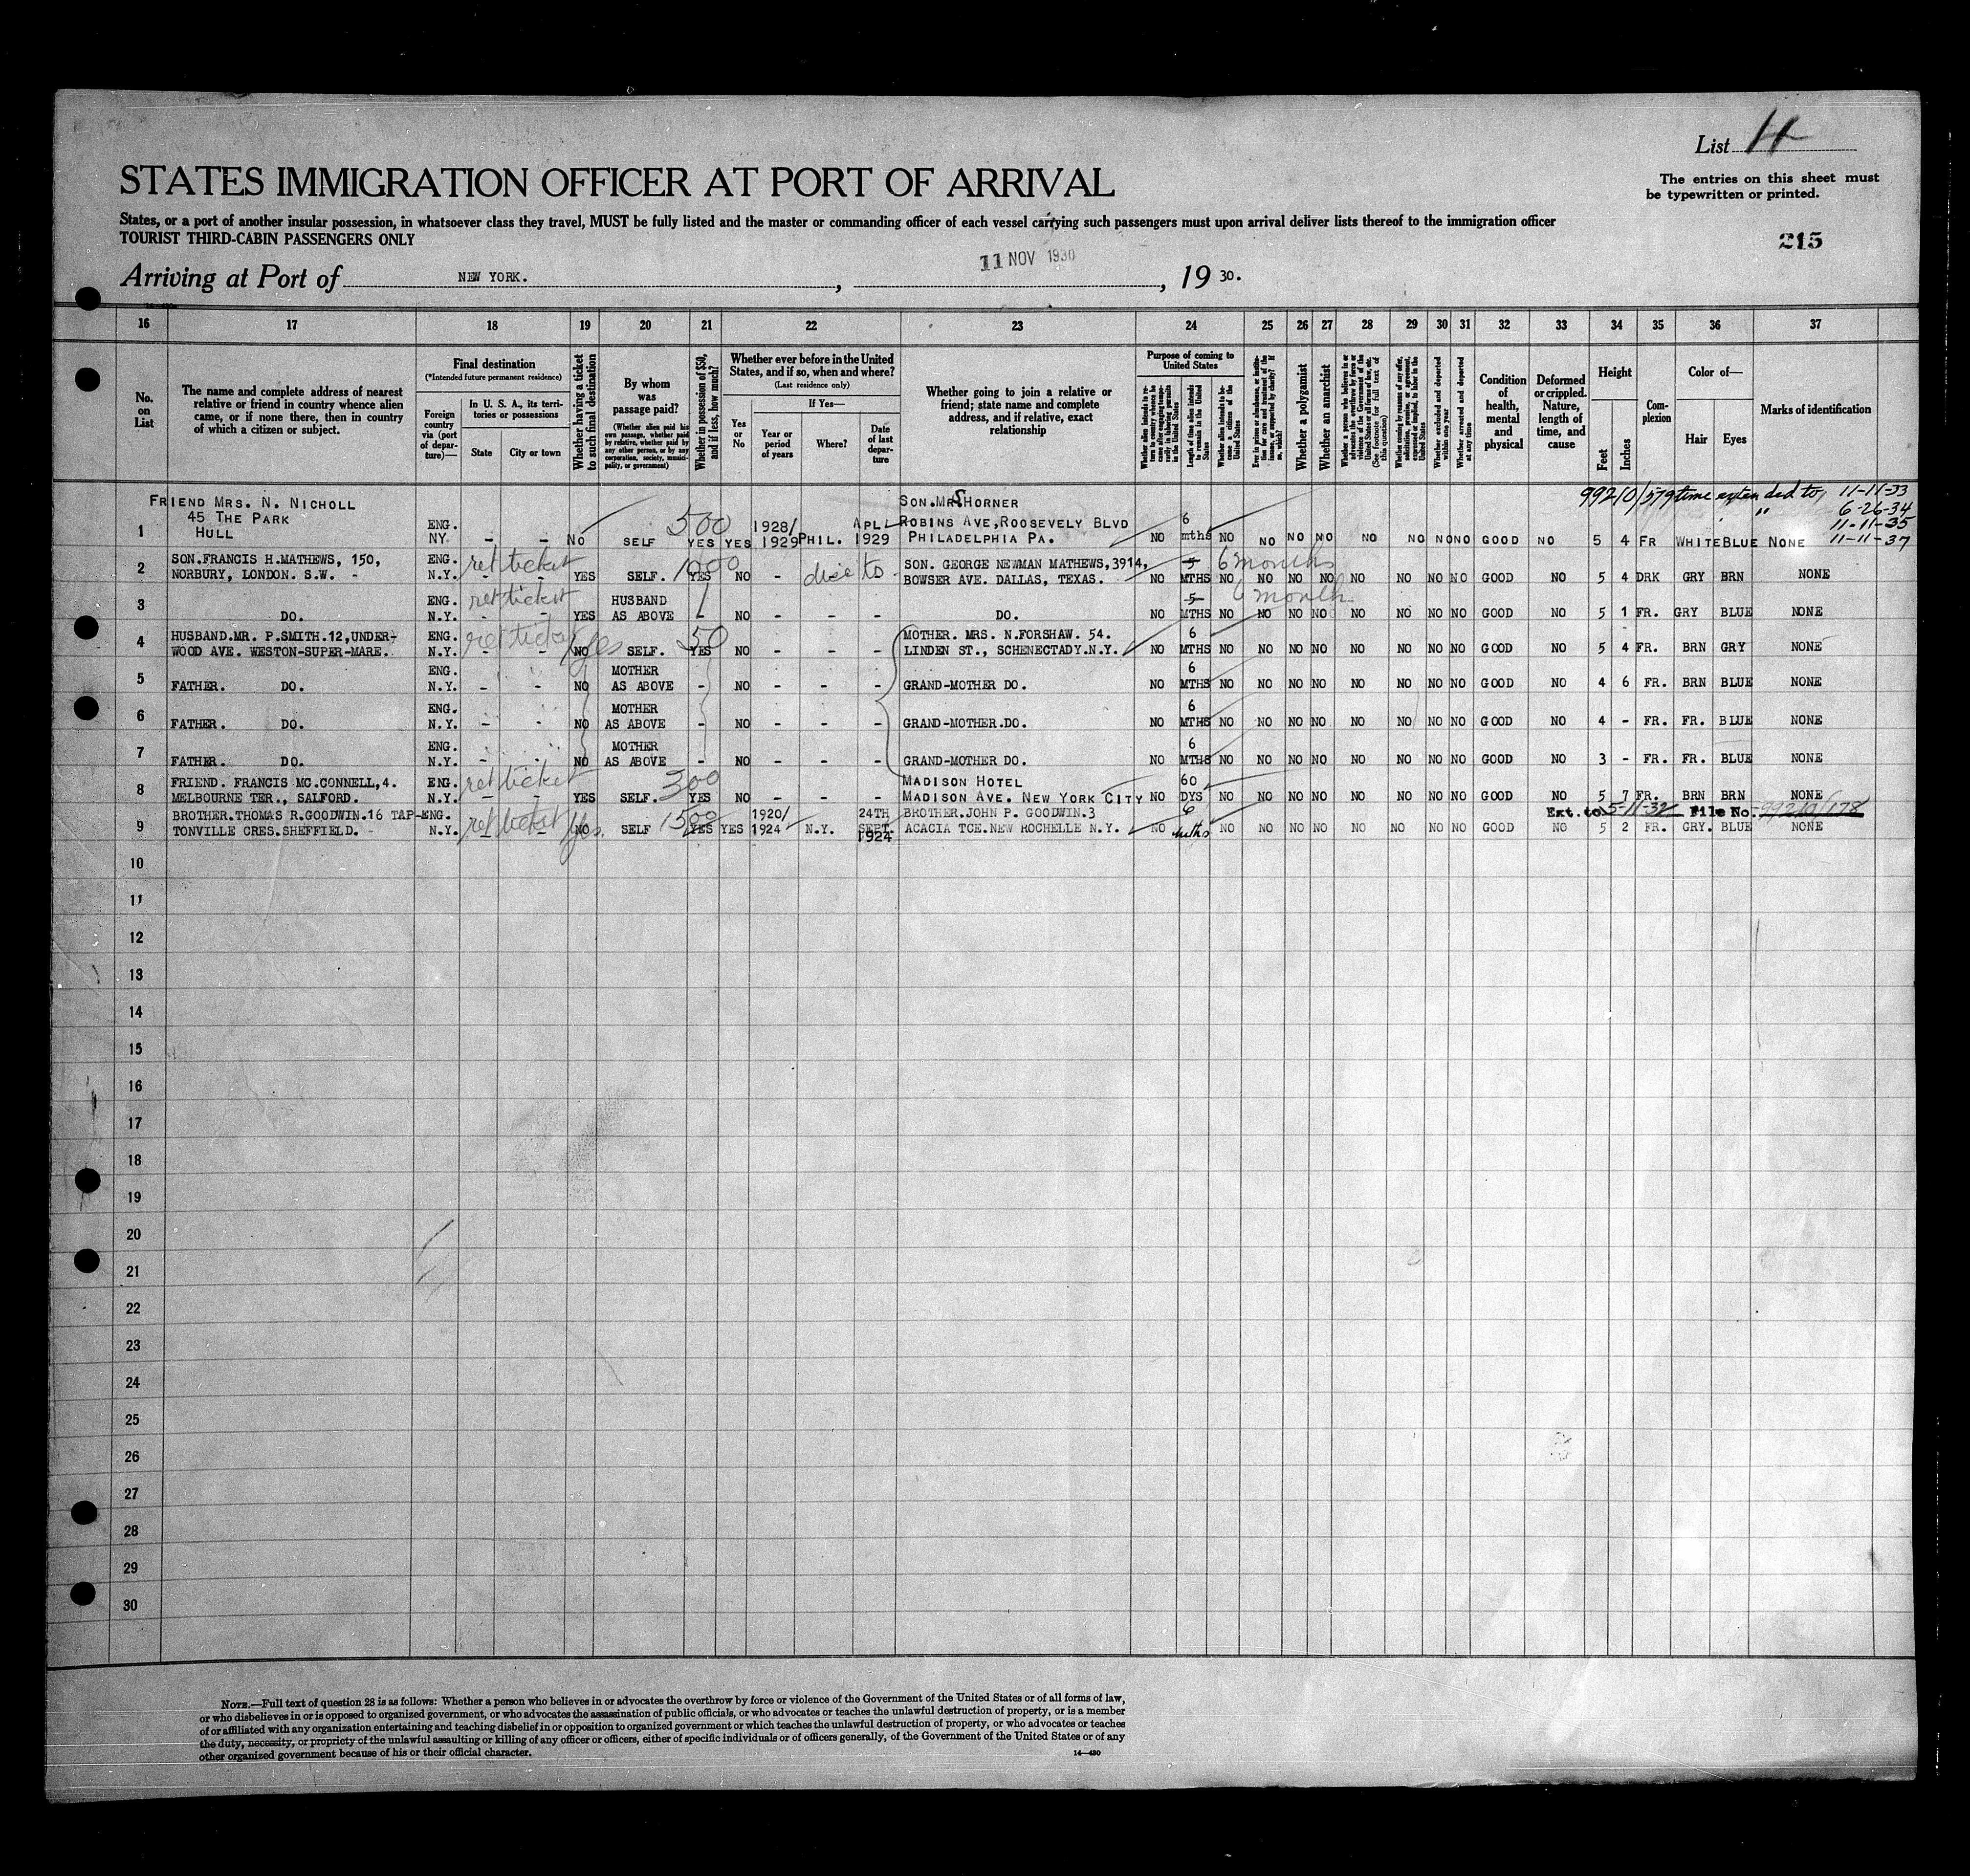 List 4
The entries on this sheet must
be typewritten or printed.
STATES IMMIGRATION OFFICER AT PORT OF ARRIVAL
States, or a port of another insular possession, in whatsoever class they travel, MUST be fully listed and the master or commanding officer of each vessel carrying such passengers must upon arrival deliver lists thereof to the immigration officer
TOURIST THIRD-CABIN PASSENGERS ONLY
215
Arriving at Port of NEW YORK. , 11 NOV 1930 , 19 30.
16 17 18 19 20 21 22 23 24 25 26 27 28 29 30 31 32 33 34 35 36 37
No. on List
The name and complete address of nearest
relative or friend in country whence alien
came, or if none there, then in country
of which a citizen or subject.
Final destination
(*Intended future permanent residence)
Foreign country via (port of departure)—
In U. S. A., its territories or possessions
State
City or town
Whether having a ticket to such final destination
By whom was passage paid?
(Whether alien paid his own passage, whether paid by relative, whether paid by any other person, or by any corporation, society, municipality, or government)
Whether in possession of $50, and if less, how much?
Whether ever before in the United
States, and if so, when and where?
(Last residence only)
Yes or No
If Yes—
Year or period of years
Where?
Date of last departure
Whether going to join a relative or
friend; state name and complete
address, and if relative, exact
relationship
Purpose of coming to United States
Length of time alien intends to remain in the United States
Whether alien intends to become a citizen of the United States
Whether a polygamist
Whether an anarchist
Whether excluded and deported within one year
Whether arrested and deported at any time
Condition of health, mental and physical
Deformed or crippled. Nature, length of time, and cause
Height
Feet
Inches
Complexion
Color of—
Hair
Eyes
Marks of identification
FRIEND MRS. N. NICHOLL SON.MR.S.HORNER 99210/579 time extended to 11-11-33
45 THE PARK " 6-26-34
HULL ENG. 500 1928/ APL. ROBINS AVE,ROOSEVELY BLVD 6 11-11-35
1 NY - - NO SELF YES YES 1929 PHIL. 1929 PHILADELPHIA PA. NO mths NO NO NO NO NO NO NO NO GOOD NO 5 4 FR WHITE BLUE NONE 11-11-37
2 SON.FRANCIS H.MATHEWS, 150, ENG. ret ticket 1000 SON. GEORGE NEWMAN MATHEWS,3914, 5 6 months
NORBURY, LONDON. S.W. - N.Y. - - YES SELF. YES NO - BOWSER AVE. DALLAS, TEXAS. NO MTHS NO NO NO NO NO NO NO NO GOOD NO 5 4 DRK GRY BRN NONE
3 ENG. ret ticket HUSBAND 5 6 month
DO. N.Y. - - YES AS ABOVE NO - - - DO. NO MTHS NO NO NO NO NO NO NO NO GOOD NO 5 1 FR. GRY BLUE NONE
4 HUSBAND.MR. P.SMITH.12,UNDER- ENG. ret ticket yes 50 MOTHER. MRS. N.FORSHAW. 54. 6
WOOD AVE. WESTON-SUPER-MARE. N.Y. - - NO SELF. YES NO - - - LINDEN ST., SCHENECTADY.N.Y. NO MTHS NO NO NO NO NO NO NO NO GOOD NO 5 4 FR. BRN GRY NONE
5 ENG. MOTHER 6
FATHER. DO. N.Y. - - NO AS ABOVE - NO - - - GRAND-MOTHER DO. NO MTHS NO NO NO NO NO NO NO NO GOOD NO 4 6 FR. BRN BLUE NONE
6 ENG. MOTHER 6
FATHER. DO. N.Y. - - NO AS ABOVE - NO - - - GRAND-MOTHER.DO. NO MTHS NO NO NO NO NO NO NO NO GOOD NO 4 - FR. FR. BLUE NONE
7 ENG. MOTHER 6
FATHER. DO. N.Y. - - NO AS ABOVE - NO - - - GRAND-MOTHER DO. NO MTHS NO NO NO NO NO NO NO NO GOOD NO 3 - FR. FR. BLUE NONE
8 FRIEND. FRANCIS MC.CONNELL,4. ENG. ret ticket 300 MADISON HOTEL 60
MELBOURNE TER., SALFORD. N.Y. - - YES SELF. YES NO - - - MADISON AVE. NEW YORK CITY NO DYS NO NO NO NO NO NO NO NO GOOD NO 5 7 FR. BRN BRN NONE
9 BROTHER.THOMAS R.GOODWIN.16 TAP- ENG. ret ticket yes 1500 1920/ 24TH BROTHER.JOHN P. GOODWIN.3 6 Ext. to 5-11-32 File No. 99210/178
TONVILLE CRES.SHEFFIELD. - N.Y. - - NO SELF YES YES 1924 N.Y. SEPT. 1924 ACACIA TCE.NEW ROCHELLE N.Y. NO mths NO NO NO NO NO NO NO NO GOOD NO 5 2 FR. GRY. BLUE NONE
10
11
12
13
14
15
16
17
18
19
20
21
22
23
24
25
26
27
28
29
30
NOTE.—Full text of question 28 is as follows: Whether a person who believes in or advocates the overthrow by force or violence of the Government of the United States or of all forms of law,
or who disbelieves in or is opposed to organized government, or who advocates the assassination of public officials, or who advocates or teaches the unlawful destruction of property, or is a member
of or affiliated with any organization entertaining and teaching disbelief in or opposition to organized government or which teaches the unlawful destruction of property, or who advocates or teaches
the duty, necessity, or propriety of the unlawful assaulting or killing of any officer or officers, either of specific individuals or of officers generally, of the Government of the United States or of any
other organized government because of his or their official character.
14—430